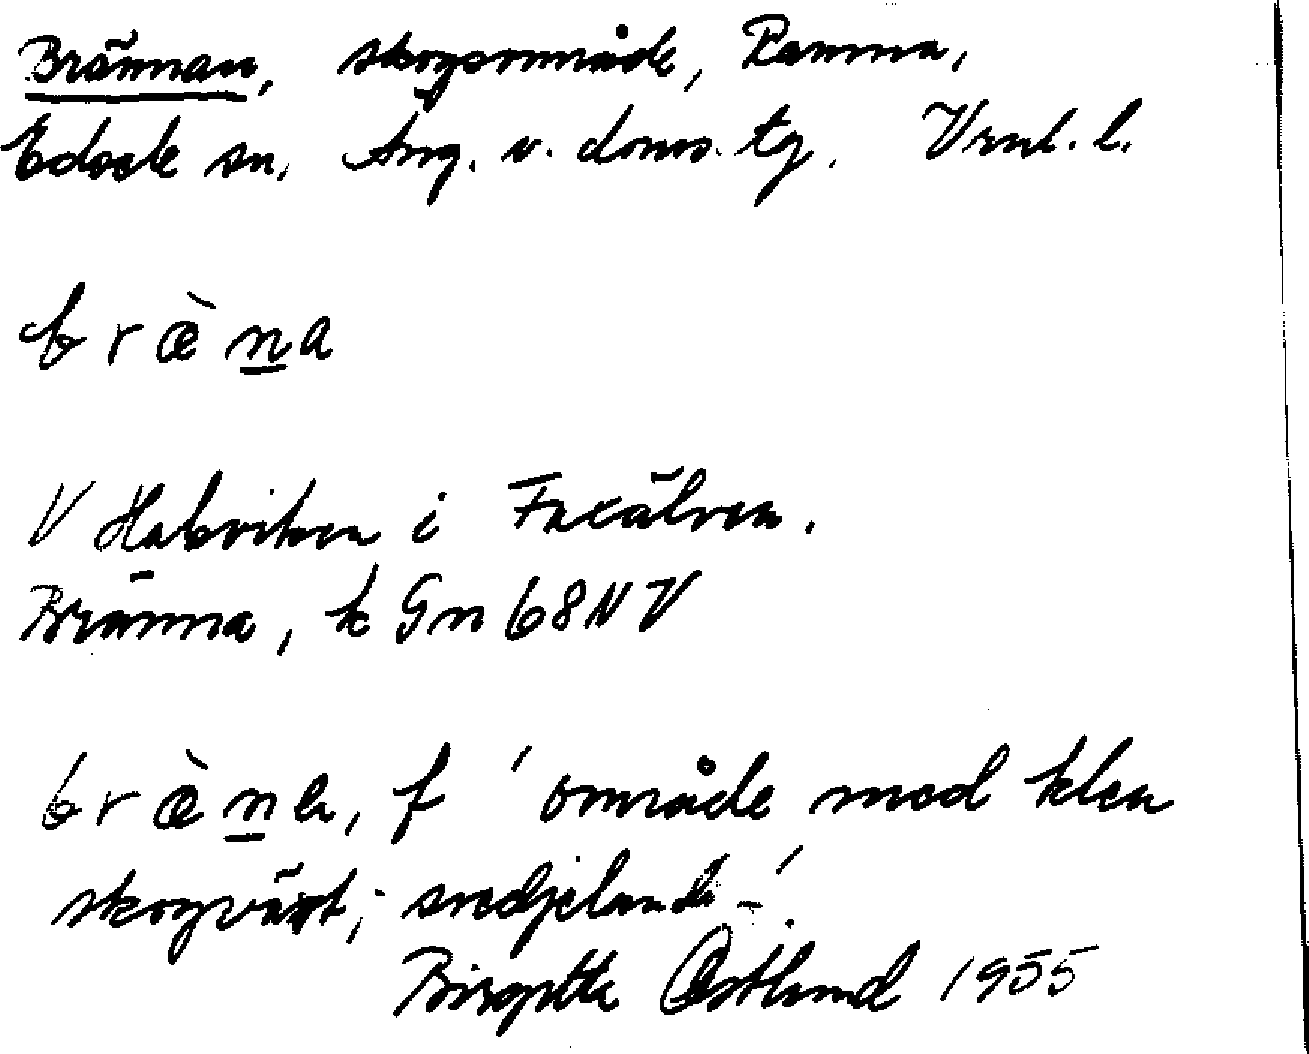 Brännan, skogsområde, Ramma,
Edsele sn, Ång. v. doms. tg. Vrnl. l.
b r æ̀ n a
V Habviken i Faxälven.
Bränna, k Gn 68 NV
b r æ̀ n a, f 'område med klen
skogväxt; svedjeland –'.
Birgitta Östlund 1955